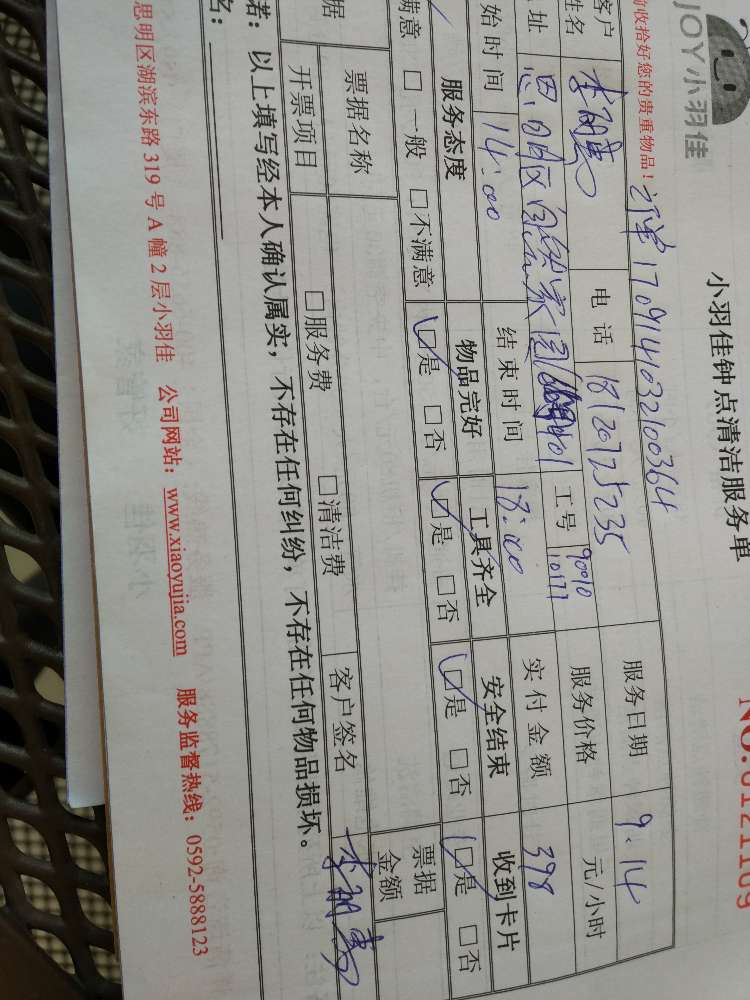 JOY小羽佳
小羽佳钟点清洁服务单
收拾好您的贵重物品！
订单1709141032100364
客户姓名
电话 18120725235
服务日期 9.14
址 思明区自然家园
工号 90010
10177
服务价格 元/小时
始时间 14:00
结束时间 18:00
实付金额 398
服务态度
物品完好
工具齐全
安全结束
收到卡片
满意 □ 一般 □ 不满意
☑是 □否
☑是 □否
☑是 □否
☑是 □否
据
票据名称
票据金额
开票项目
□服务费
□清洁费
客户签名
若：以上填写经本人确认属实，不存在任何纠纷，不存在任何物品损坏。
名：
思明区湖滨东路 319 号 A 幢 2 层小羽佳 公司网站：www.xiaoyujia.com 服务监督热线：0592-5888123